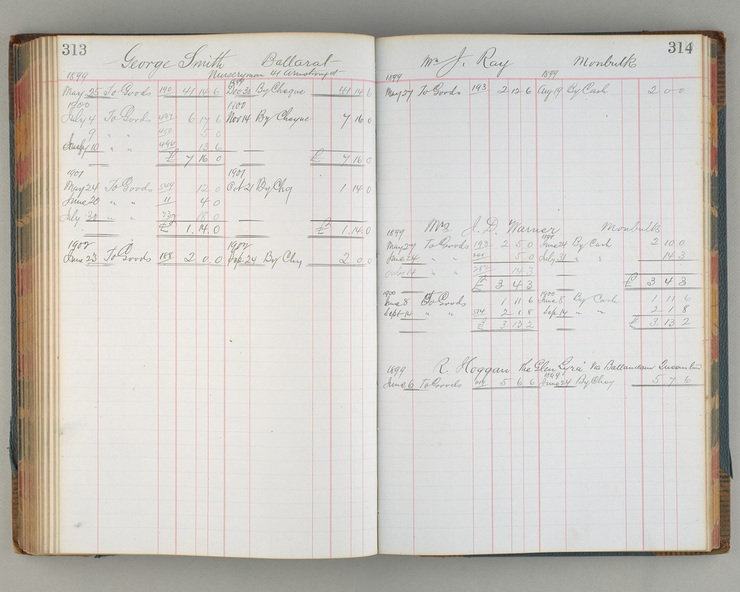 313
George Smith Ballarat
Nurseryman 41 Armstrong St
1899 1899
May 25 To Goods 190 41 14 6 Dec 30 By Cheque 41 14 6
1900 1900
July 4 To Goods 437 6 17 6 Nov 14 By Cheque 7 16 0
9 " " 450 5 0
10 " " 13 6
£ 7 16 0 £ 7 16 0
1901 1901
May 24 To Goods 12 0 Oct 21 By Chq 1 14 0
June 20 " " 11 4 0
July 30 " " 18 0
£ 1.14.0 £ 1.14.0
1902 1902
June 23 To Goods 2 0 0 Sep 24 By Chq 2 0 0
314
Mr J. Ray Monbulk
1899 1899
May 27 To Goods 193 2 12 6 Aug 19 By Cash 2 0 0
Mrs J. D. Warner Monbulk
1899 1899
May 27 To Goods 193 2 5 0 June 24 By Cash 2 10 0
June 24 " " 5 0 July 31 " " 14 3
" " 14 3
£ 3 4 3 £ 3 4 3
1900 1900
June 8 To Goods 1 11 6 June 8 By Cash 1 11 6
Sept 14 " " 2 1 8 Sep 14 " " 2 1 8
£ 3.13 2 £ 3.13 2
R. Hoggan The Glen Lyra Via Ballandean Queensland
1899 1899
June 6 To Goods 5 6 6 June 24 By Chq 5 7 6